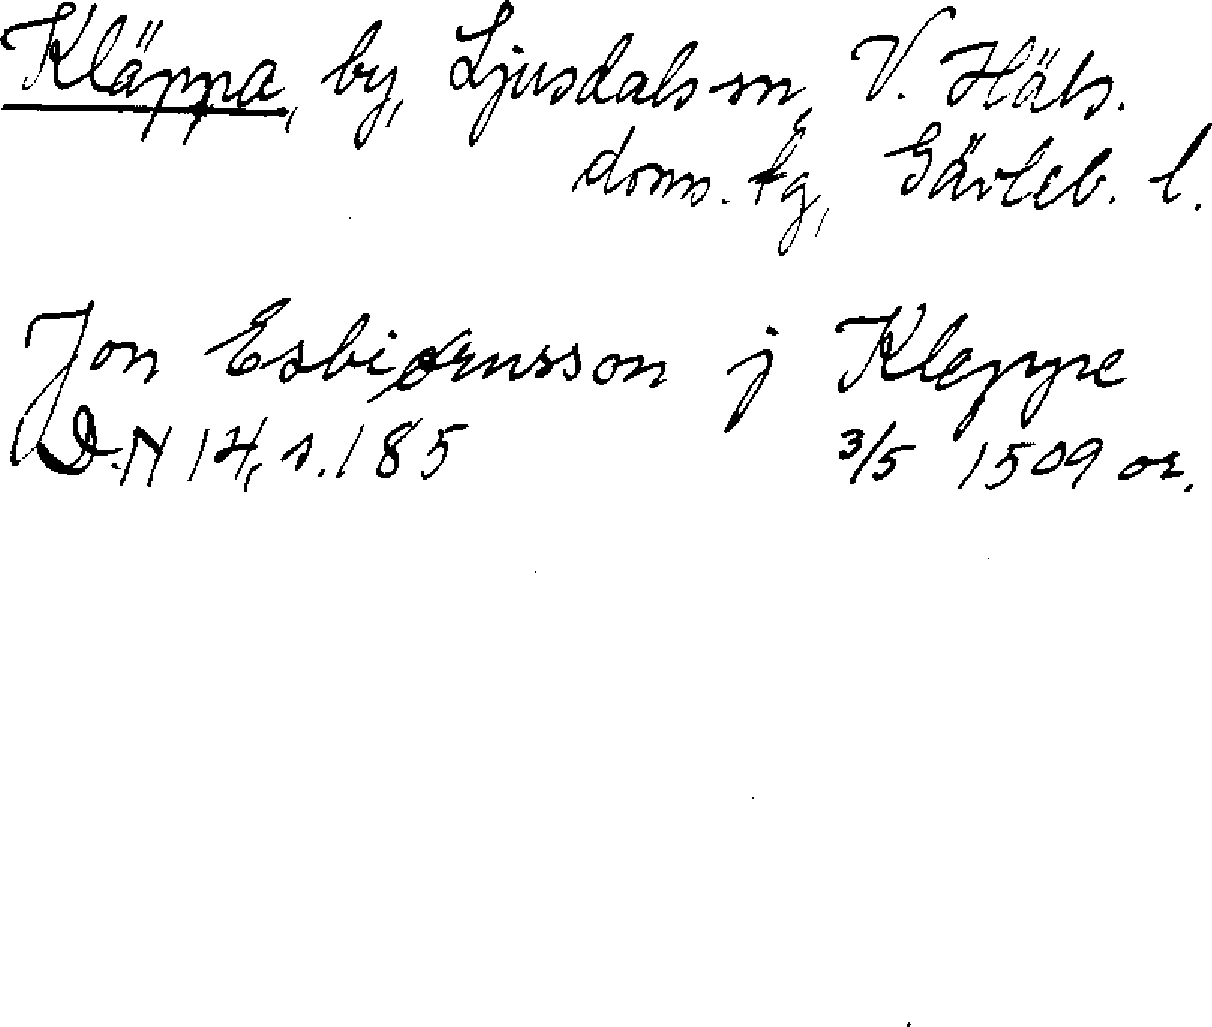 Kläppa, by, Ljusdals sn, V. Häls.
doms. tg, Gävleb. l.
Jon Esbiørnsson j Kleppe
D.N 14, s. 185 3/5 1509 or.